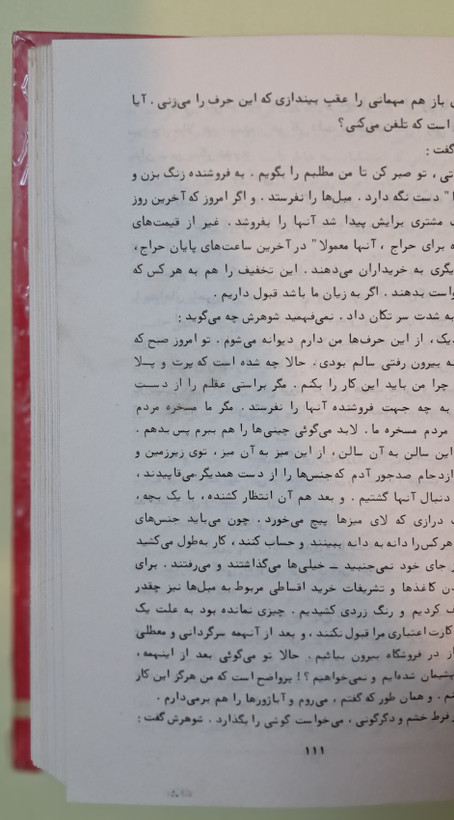 باز هم مهمانی را عقب بیندازی که این حرف را می‌زنی . آیا
است که تلفن می‌کنی؟
گفت :
تو صبر کن تا من مطلبم را بگویم . به فروشنده زنگ بزن و
دست نگه دارد . مبل‌ها را نفرستد . و اگر امروز که آخرین روز
مشتری برایش پیدا شد آنها را بفروشد . غیر از قیمت‌های
برای حراج ، آنها معمولا" در آخرین ساعت‌های پایان حراج ،
دیگری به خریداران می‌دهند . این تخفیف را هم به هر کس که
بدهند . اگر به زیان ما باشد قبول داریم .
به شدت سر تکان داد . نمی‌فهمید شوهرش چه می‌گوید :
از این حرف‌ها من دارم دیوانه می‌شوم . تو امروز صبح که
بیرون رفتی سالم بودی . حالا چه شده است که پرت و پــلا
چرا من باید این کار را بکنم . مگر براستی عقلم را از دســت
به چه جهت فروشنده آنها را نفرستد . مگر ما مسخره مردم
مردم مسخره ما . لابد می‌گوئی چینی‌ها را هم ببرم پس بدهم .
این سالن به آن سالن ، از این میز به آن میز ، توی زیرزمین و
ازدحام صدجور آدم که جنس‌ها را از دست همدیگر می‌قاپیدند ،
دنبال آنها گشتیم . و بعد هم آن انتظار کشنده ، با یک بچه ،
درازی که لای میزها پیچ می‌خورد . چون می‌باید جنس‌های
هر کس را دانه به دانه ببینند و حساب کنند ، کار به‌طول می‌کشید
جای خود نمی‌جنبید ــ خیلی‌ها می‌گذاشتند و می‌رفتند . برای
کاغذها و تشریفات خرید اقساطی مربوط به مبل‌ها نیز چقدر
کردیم و رنگ زردی کشیدیم . چیزی نمانده بود به علت یک
کارت اعتباری مرا قبول نکنند ، و بعد از آنهمه سرگردانی و معطلی
از در فروشگاه بیرون بیائیم . حالا تو می‌گوئی بعد از اینهمه ،
پشیمان شده‌ایم و نمی‌خواهیم ؟! پرواضح است که من هرگز این کار
و همان طور که گفتم ، می‌روم و آباژورها را هم برمی‌دارم .
فرط خشم و دگرگونی ، می‌خواست گوشی را بگذارد . شوهرش گفت :
۱۱۱